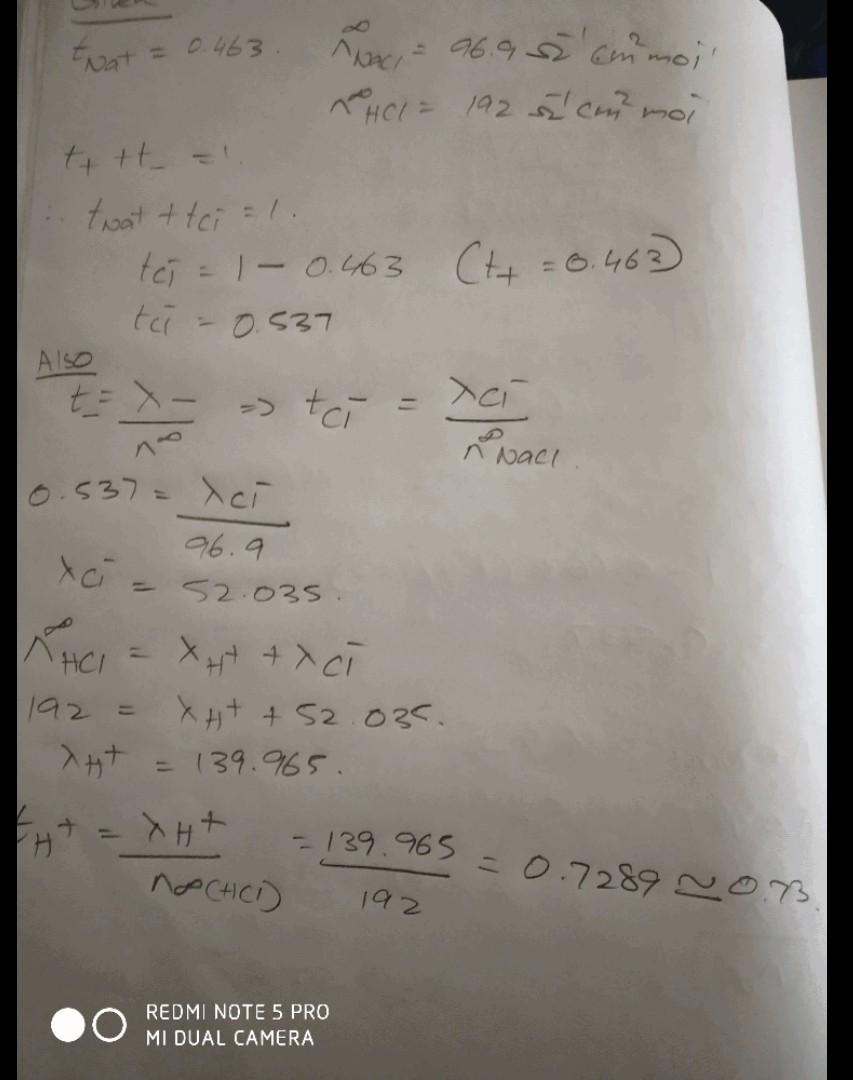 Given
t_Na+ = 0.463. Λ^∞_NaCl = 96.9 Ω^-1 cm^2 mol^-1
Λ^∞_HCl = 192 Ω^-1 cm^2 mol^-
t_+ + t_- = 1.
∴ t_Na+ + t_Cl^- = 1.
t_Cl^- = 1 - 0.463 (t_+ = 0.463)
t_Cl^- = 0.537
Also
t_- = λ_- / Λ^∞ => t_Cl^- = λ_Cl^- / Λ^∞_NaCl.
0.537 = λ_Cl^- / 96.9
λ_Cl^- = 52.035.
Λ^∞_HCl = λ_H+ + λ_Cl^-
192 = λ_H+ + 52.035.
λ_H+ = 139.965.
t_H+ = λ_H+ / Λ^∞(HCl) = 139.965 / 192 = 0.7289 ≃ 0.73.
REDMI NOTE 5 PRO
MI DUAL CAMERA